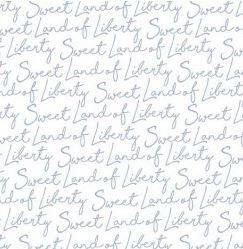 rty Sweet Land of Liberty
Sweet Land of Liberty Sweet
Liberty Sweet Land of Liberty
Land of Liberty Sweet Land of
rty Sweet Land of Liberty
Sweet Land of Liberty Sweet
Liberty Sweet Land of Liberty
Land of Liberty Sweet Land of
rty Sweet Land of Liberty
Sweet Land of Liberty Sweet
Liberty Sweet Land of Liberty